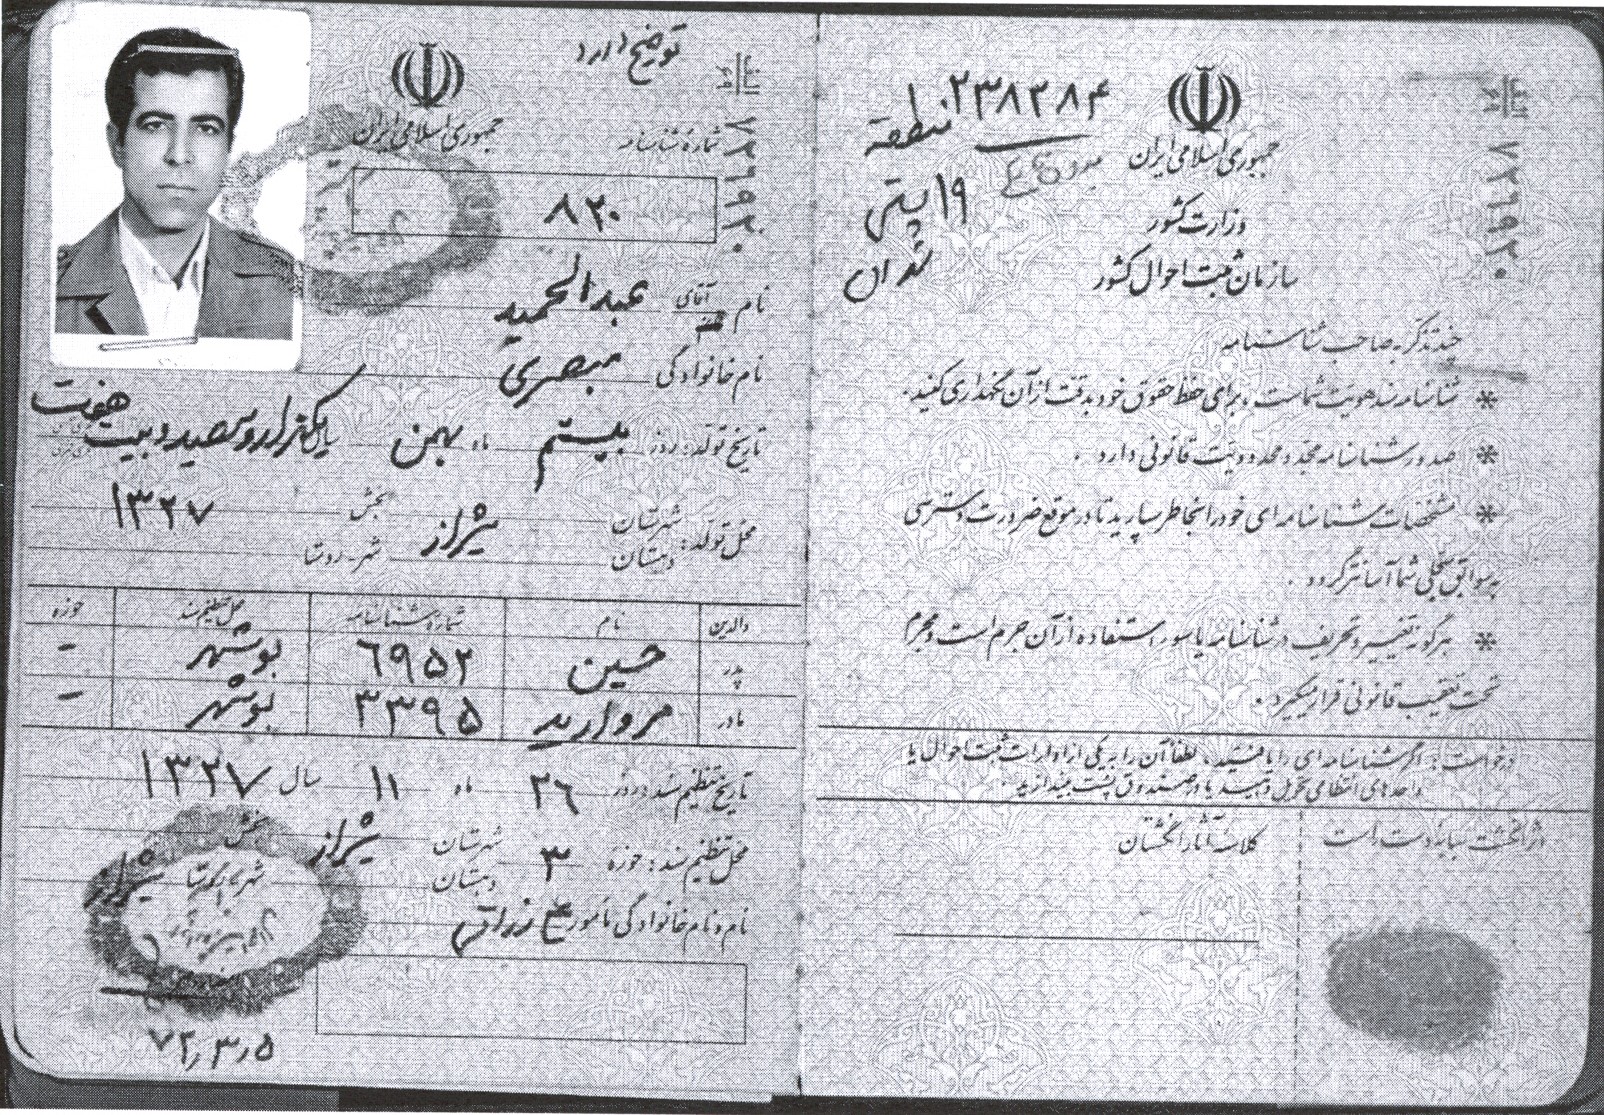 الف
۶۹
۷۲۶۹۲۰
جمهوری اسلامی ایران
وزارت کشور
سازمان ثبت احوال کشور
۲۳۸۲۸۴
منطقه
۱۹ پستی
تهران
چند تذکر به صاحب شناسنامه
* شناسنامه سند هویت شماست و برای حفظ حقوق خود بدقت از آن نگهداری کنید.
* صدور شناسنامه مجدد محدودیت قانونی دارد.
* مشخصات شناسنامه ای خود را بخاطر بسپارید تا در موقع ضرورت دسترسی
به سوابق سجلی شما آسانتر گردد.
* هرگونه تغییر و تحریف در شناسنامه یا سوء استفاده از آن جرم است و مجرم
تحت تعقیب قانونی قرار میگیرد.
درخواست: اگر شناسنامه ای را یافتید، لطفاً آن را به یکی از ادارات ثبت احوال یا
واحدهای انتظامی تحویل دهید یا در صندوق پست بیندازید.
اثر انگشت سبابه دست راست
کلاسه آثار انگشتان
توضیح دارد
الف
۶۹
۷۲۶۹۲۰
جمهوری اسلامی ایران
شماره شناسنامه
۸۲۰
نام آقای عبدالحمید
نام خانوادگی مبصری
تاریخ تولد: روز بیستم ماه بهمن سال یکهزار و سیصد و بیست هفت
محل تولد: شهرستان شیراز بخش ۱۳۲۷
دهستان شهر-روستا
والدین نام شماره شناسنامه محل تنظیم سند حوزه
پدر حسین ۶۹۵۲ بوشهر -
مادر مروارید ۳۳۹۵ بوشهر -
تاریخ تنظیم سند: روز ۲۶ ماه ۱۱ سال ۱۳۲۷
محل تنظیم سند: حوزه ۳ شهرستان شیراز بخش
دهستان شهر-روستا شیراز
نام و نام خانوادگی مأمور
۷۲/۳/۵